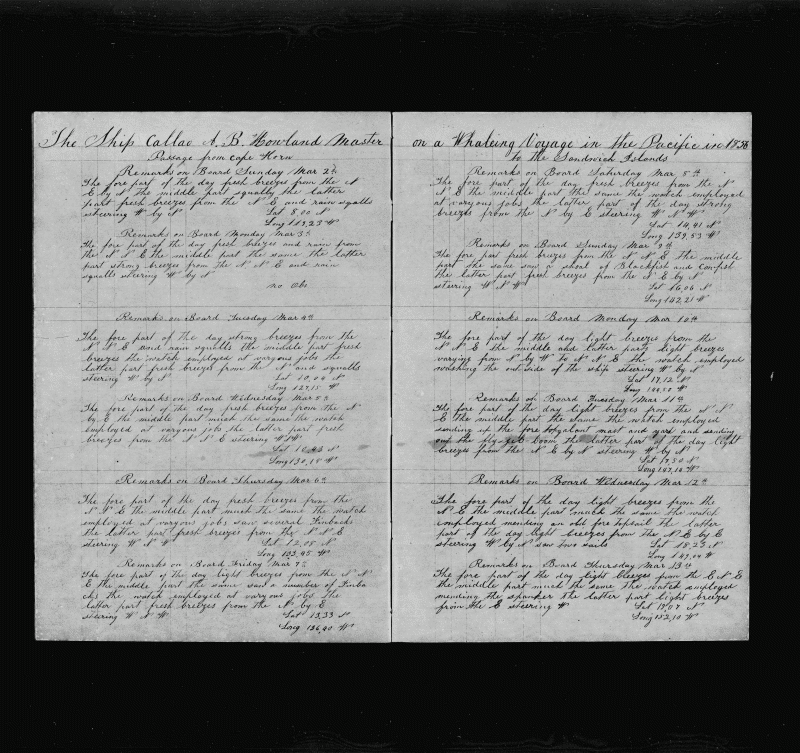 The Ship Callao A. B. Howland Master
Passage from Cape Horn
Remarks on Board Sunday Mar 2th
The fore part of the day fresh breezes from the N
E by N the middle part squally the latter
part fresh breezes from the N E and rain squalls
steering W by N Lat 8,00 N
Long 119,23 W
Remarks on Board Monday Mar 3th
The fore part of the day fresh breezes and rain from
the N N E the middle part the same the latter
part strong breezes from the N N E and rain
squalls steering W by N
no obs
Remarks on Board Tuesday Mar 4th
The fore part of the day strong breezes from the
N N E and rain squalls the middle part fresh
breezes the watch employed at varyous jobs the
latter part fresh breezes from the N and squalls
steering W by N Lat 10,04 N
Long 127,15 W
Remarks on Board Wednesday Mar 5th
The fore part of the day fresh breezes from the N
by E the middle part much the same the watch
employed at varyous jobs the latter part fresh
breezes from the N N E steering W N W
Lat 10,43 N
Long 130,14 W
Remarks on Board Thursday Mar 6th
The fore part of the day fresh breezes from the
N N E the middle part much the same the watch
employed at varyous jobs saw several Finbacks
the latter part fresh breezes from the N N E
steering W N W Lat 12,08 N
Long 133,45 W
Remarks on Board Friday Mar 7th
The fore part of the day light breezes from the N N
E the middle part the same saw a number of Finba
cks the watch employed at varyous jobs the
latter part fresh breezes from the N by E
steering W N W Lat 13,33 N
Long 136,40 W
on a Whaleing Voyage in the Pacific in 1858
to the Sandwich Islands
Remarks on Board Saturday Mar 8th
The fore part of the day fresh breezes from the N
N E the middle part the same the watch employed
at varyous jobs the latter part of the day strong
breezes from the N by E steering W N W
Lat 14,41 N
Long 139,53 W
Remarks on Board Sunday Mar 9th
The fore part fresh breezes from the N N E the middle
part the same saw a short of Blackfish and Cowfish
the latter part fresh breezes from the N E by N
steering W N W Lat 16,06 N
Long 142,21 W
Remarks on Board Monday Mar 10th
The fore part of the day light breezes from the
N N E the middle and latter parts light breezes
varying from N by W to N N E the watch employed
washing the out side of the ship steering W by N
Lat 17,12 N
Long 144,50 W
Remarks on Board Tuesday Mar 11th
The fore part of the day light breezes from the N N
E the middle part the same the watch employed
sending up the fore togalant mast and yard and sending
out the flying jib boom the latter part of the day light
breezes from the N E by N steering W by N
Lat 17,50 N
Long 147,10 W
Remarks on Board Wednesday Mar 12th
The fore part of the day light breezes from the
N N E the middle part much the same the watch
employed mending an old fore topsail the latter
part of the day light breezes from the N E by E
steering W by N saw two sails Lat 18,23 N
Long 149,04 W
Remarks on Board Thursday Mar 13th
The fore part of the day light breezes from the E N E
the middle part much the same the watch employed
mending the spanker the latter part light breezes
from the E steering W Lat 19,07 N
Long 152,10 W